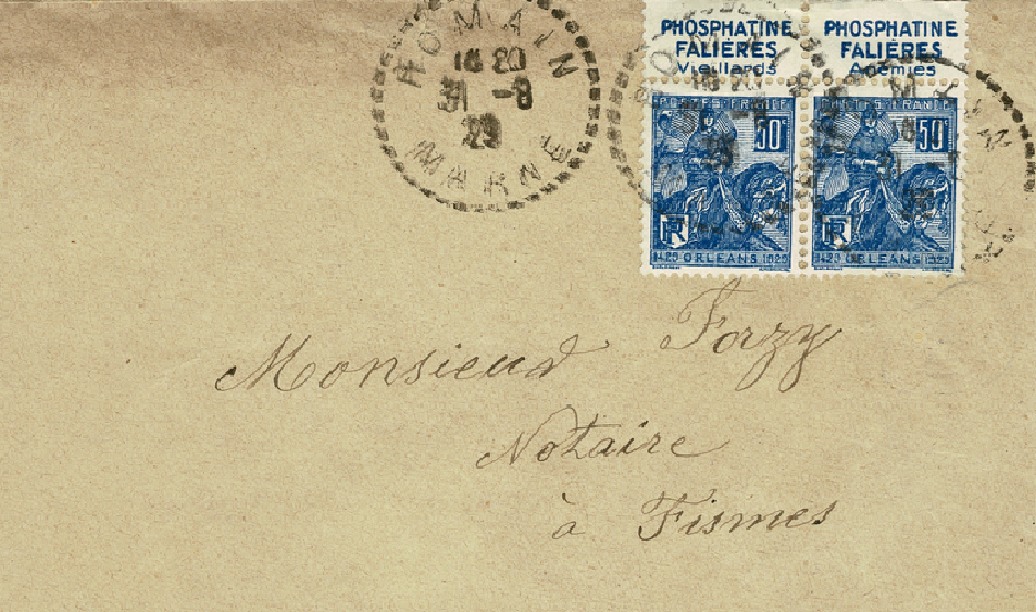 ROMAIN
18 20
31 -8
29
MARNE
PHOSPHATINE
FALIÈRES
Vieillards
PHOSPHATINE
FALIÈRES
Anémies
POSTES FRANCE
50c
RF
1429 ORLEANS 1929
POSTES FRANCE
50c
RF
1429 ORLEANS 1929
Monsieur Forzy
Notaire
à Fismes